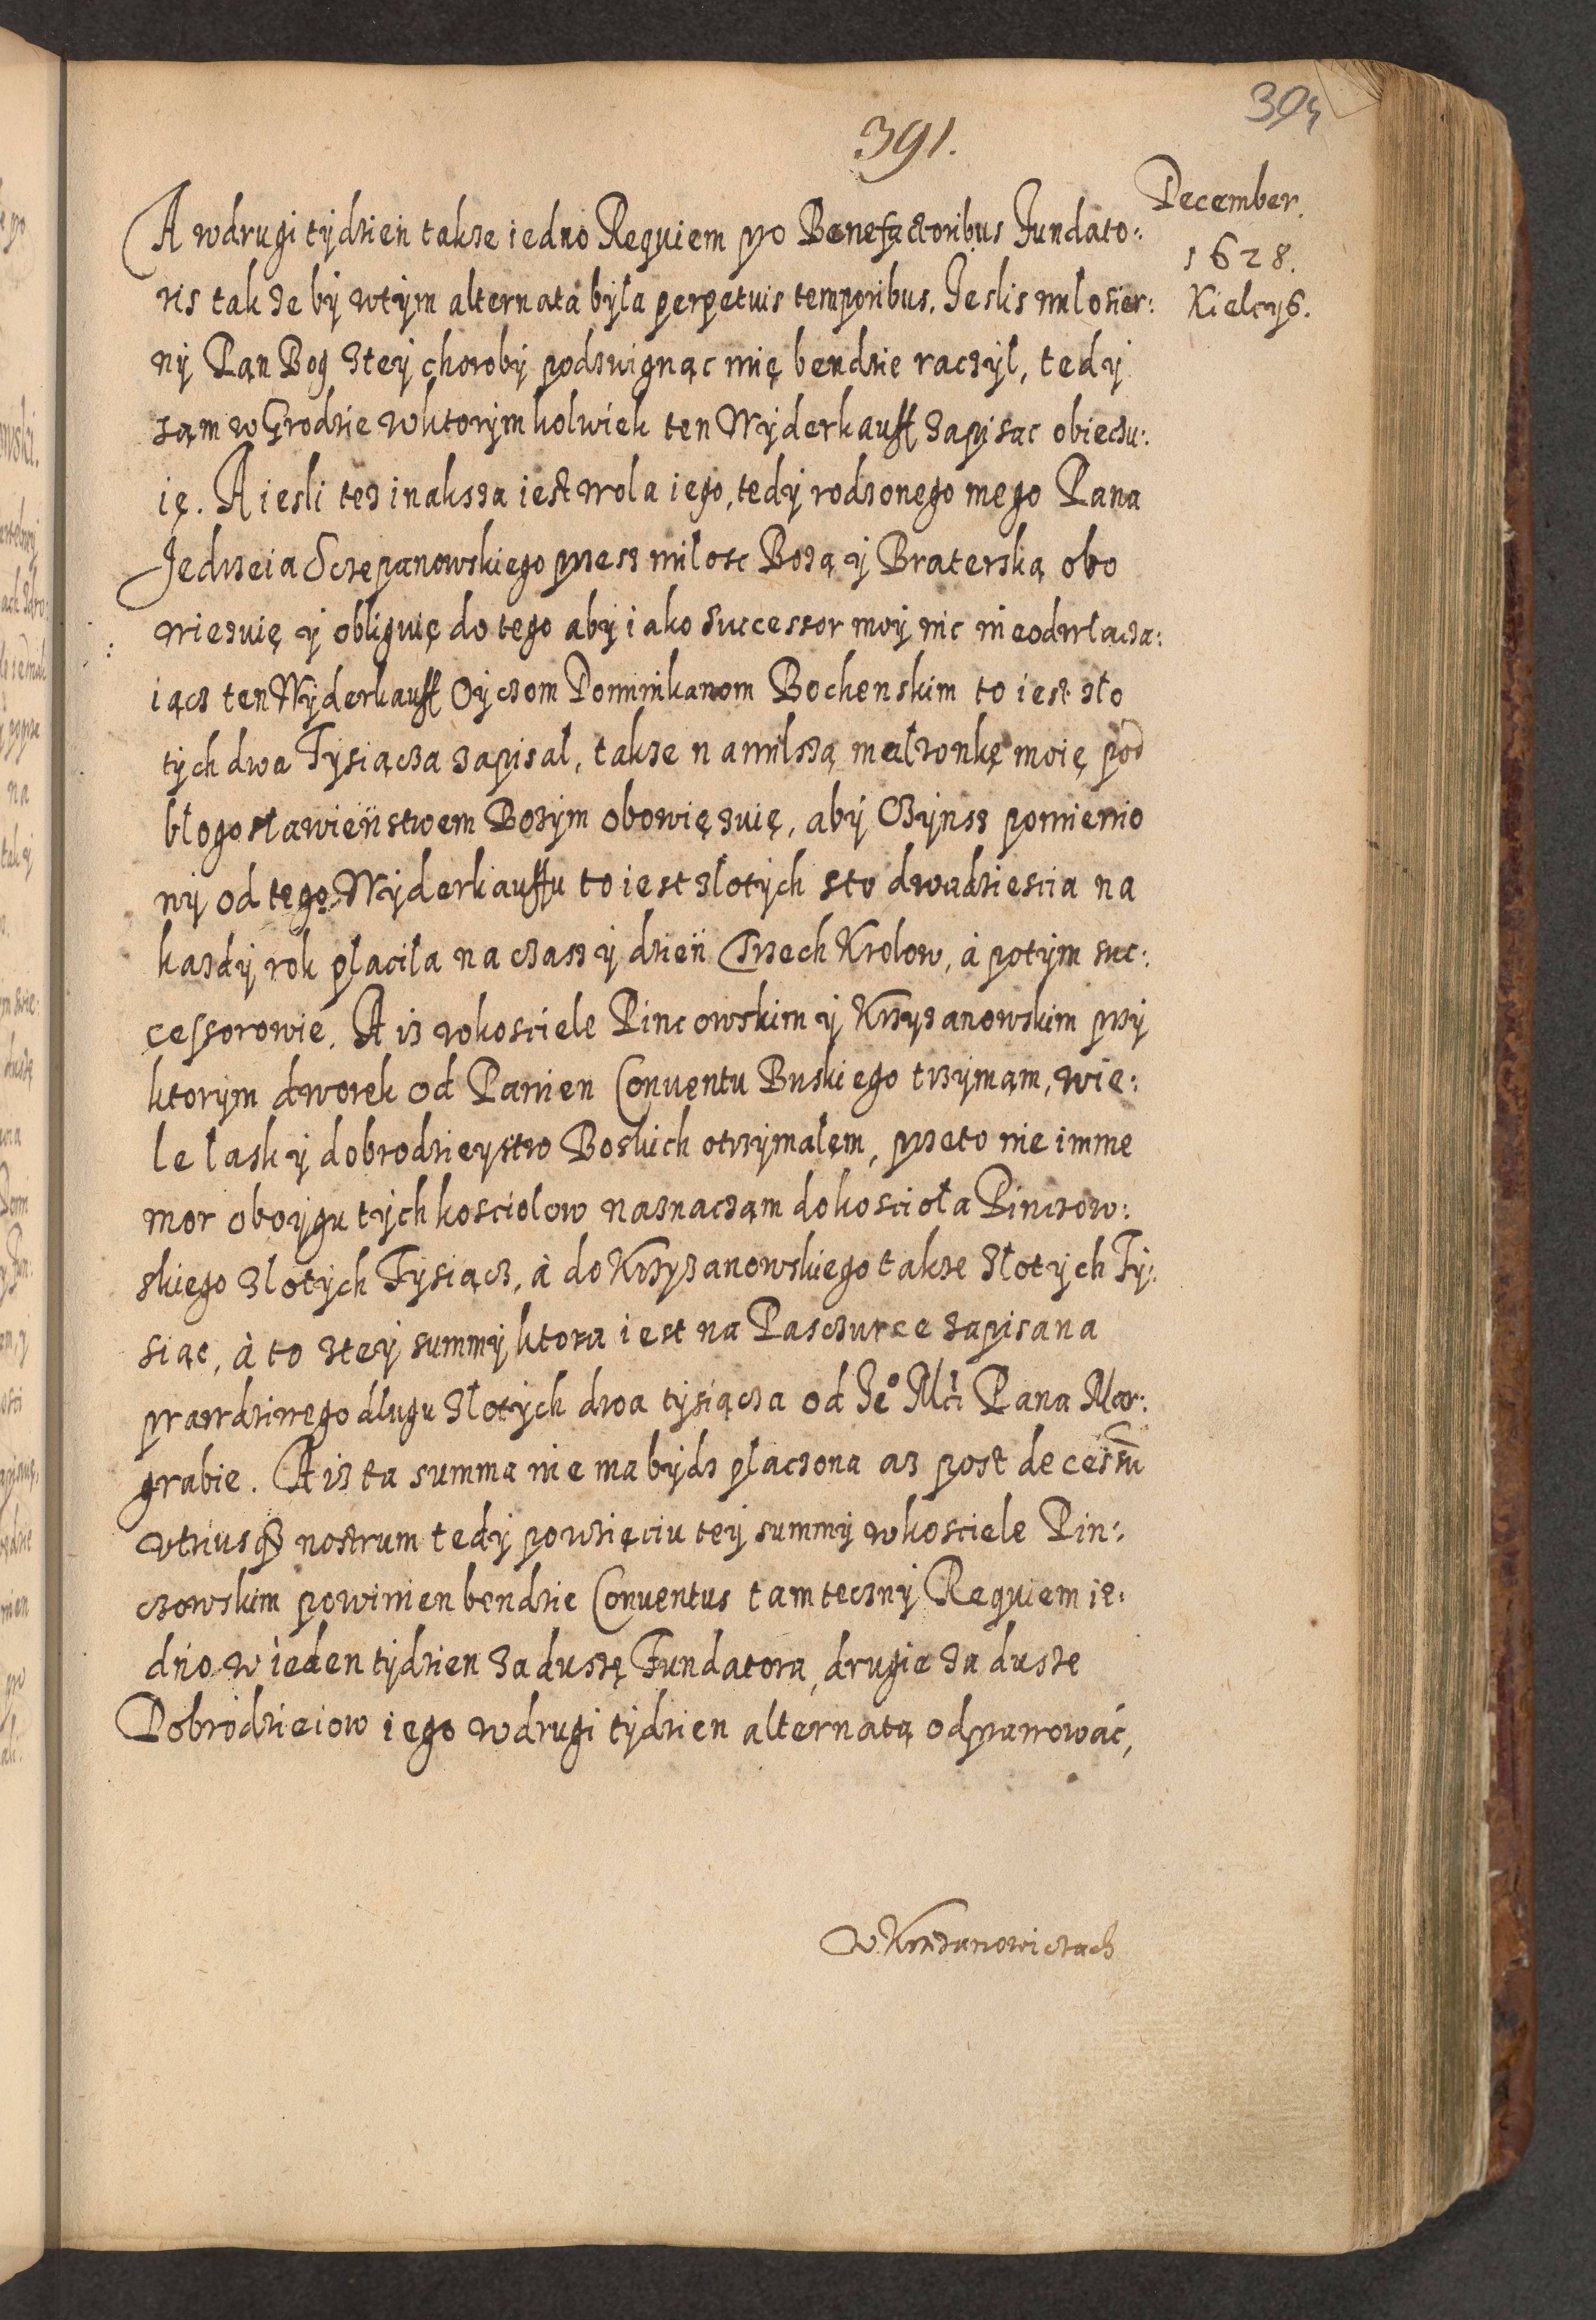 394
391.
December.
1628.
Kielcys.
A wdrugi tydzien takze iedno Requiem po Benefactoribus Fundato:
ris tak ze by wtym alternata była perpetuis temporibus. Jeslis miłosier:
ny Pan Bog ztey choroby podzwignąc mię bendzie raczył, tedy
sąm w Grodzie wktorymkolwiek ten Wyderkauff zapisac obieczu:
ię. A iesli tez inaksza iest wola iego, tedy rodzonego mego Pana
Jedrzeia Sczepanowskiego przesz miłosc Bozą y Braterską obo
wiezuię y obliguię do tego aby iako successor moy nic nieodwłacza:
iącz ten Wyderkauff Oyczom Dominikanom Bochenskim to iest zło
tych dwa Tysiącza zapisał, takze namilszą małzonkę moię pod
błogosławieństwem Bozym obowięzuię, aby Czynsz pomienio
ny od tego Wyderkauffu to iest złotych sto dwadziescia na
kazdy rok płaciła na czas y dzień Trzech Krolow, à potym suc:
cessorowie. A iz wkosciele Pincowskim y Krzyzanowskim przy
ktorym dworek od Panien Conventu Buskiego trzymąm, wie:
le łask y dobrodzieystw Boskich otrzymałęm, przeto nie imme
mor oboygu tych kosciolow naznacząm do koscioła Pinczow:
skiego złotych Tysiącz, à do Krzyzanowskiego takze złotych Ty:
siąc, à to ztey summy ktora iest na Pasczurce zapisana
prawdziwego długu złotych dwa tysiącza od Je° Mci Pana Mar:
grabie. A iz ta summa nie ma bydz płaczona az post decessu
vtriusq nostrum tedy powzięciu tey summy wkosciele Pin:
czowskim powinien bendzie Conventus tamteczny Requiem ie:
dno w ieden tydzien za duszę Fundatora, drugie za dusze
Dobrodzieiow iego wdrugi tydzien alternatą odprawować,
w Krzyzanowiczach